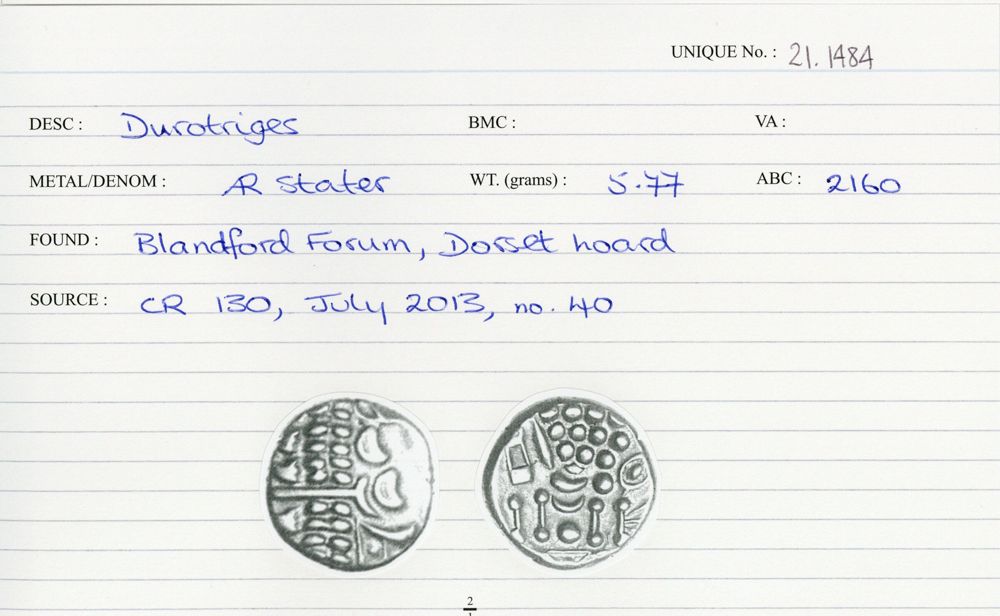 UNIQUE No. : 21.1484
DESC : Durotriges BMC : VA :
METAL/DENOM : AR Stater WT. (grams) : 5.77 ABC : 2160
FOUND : Blandford Forum, Dorset hoard
SOURCE : CR 130, July 2013, no. 40
2
1